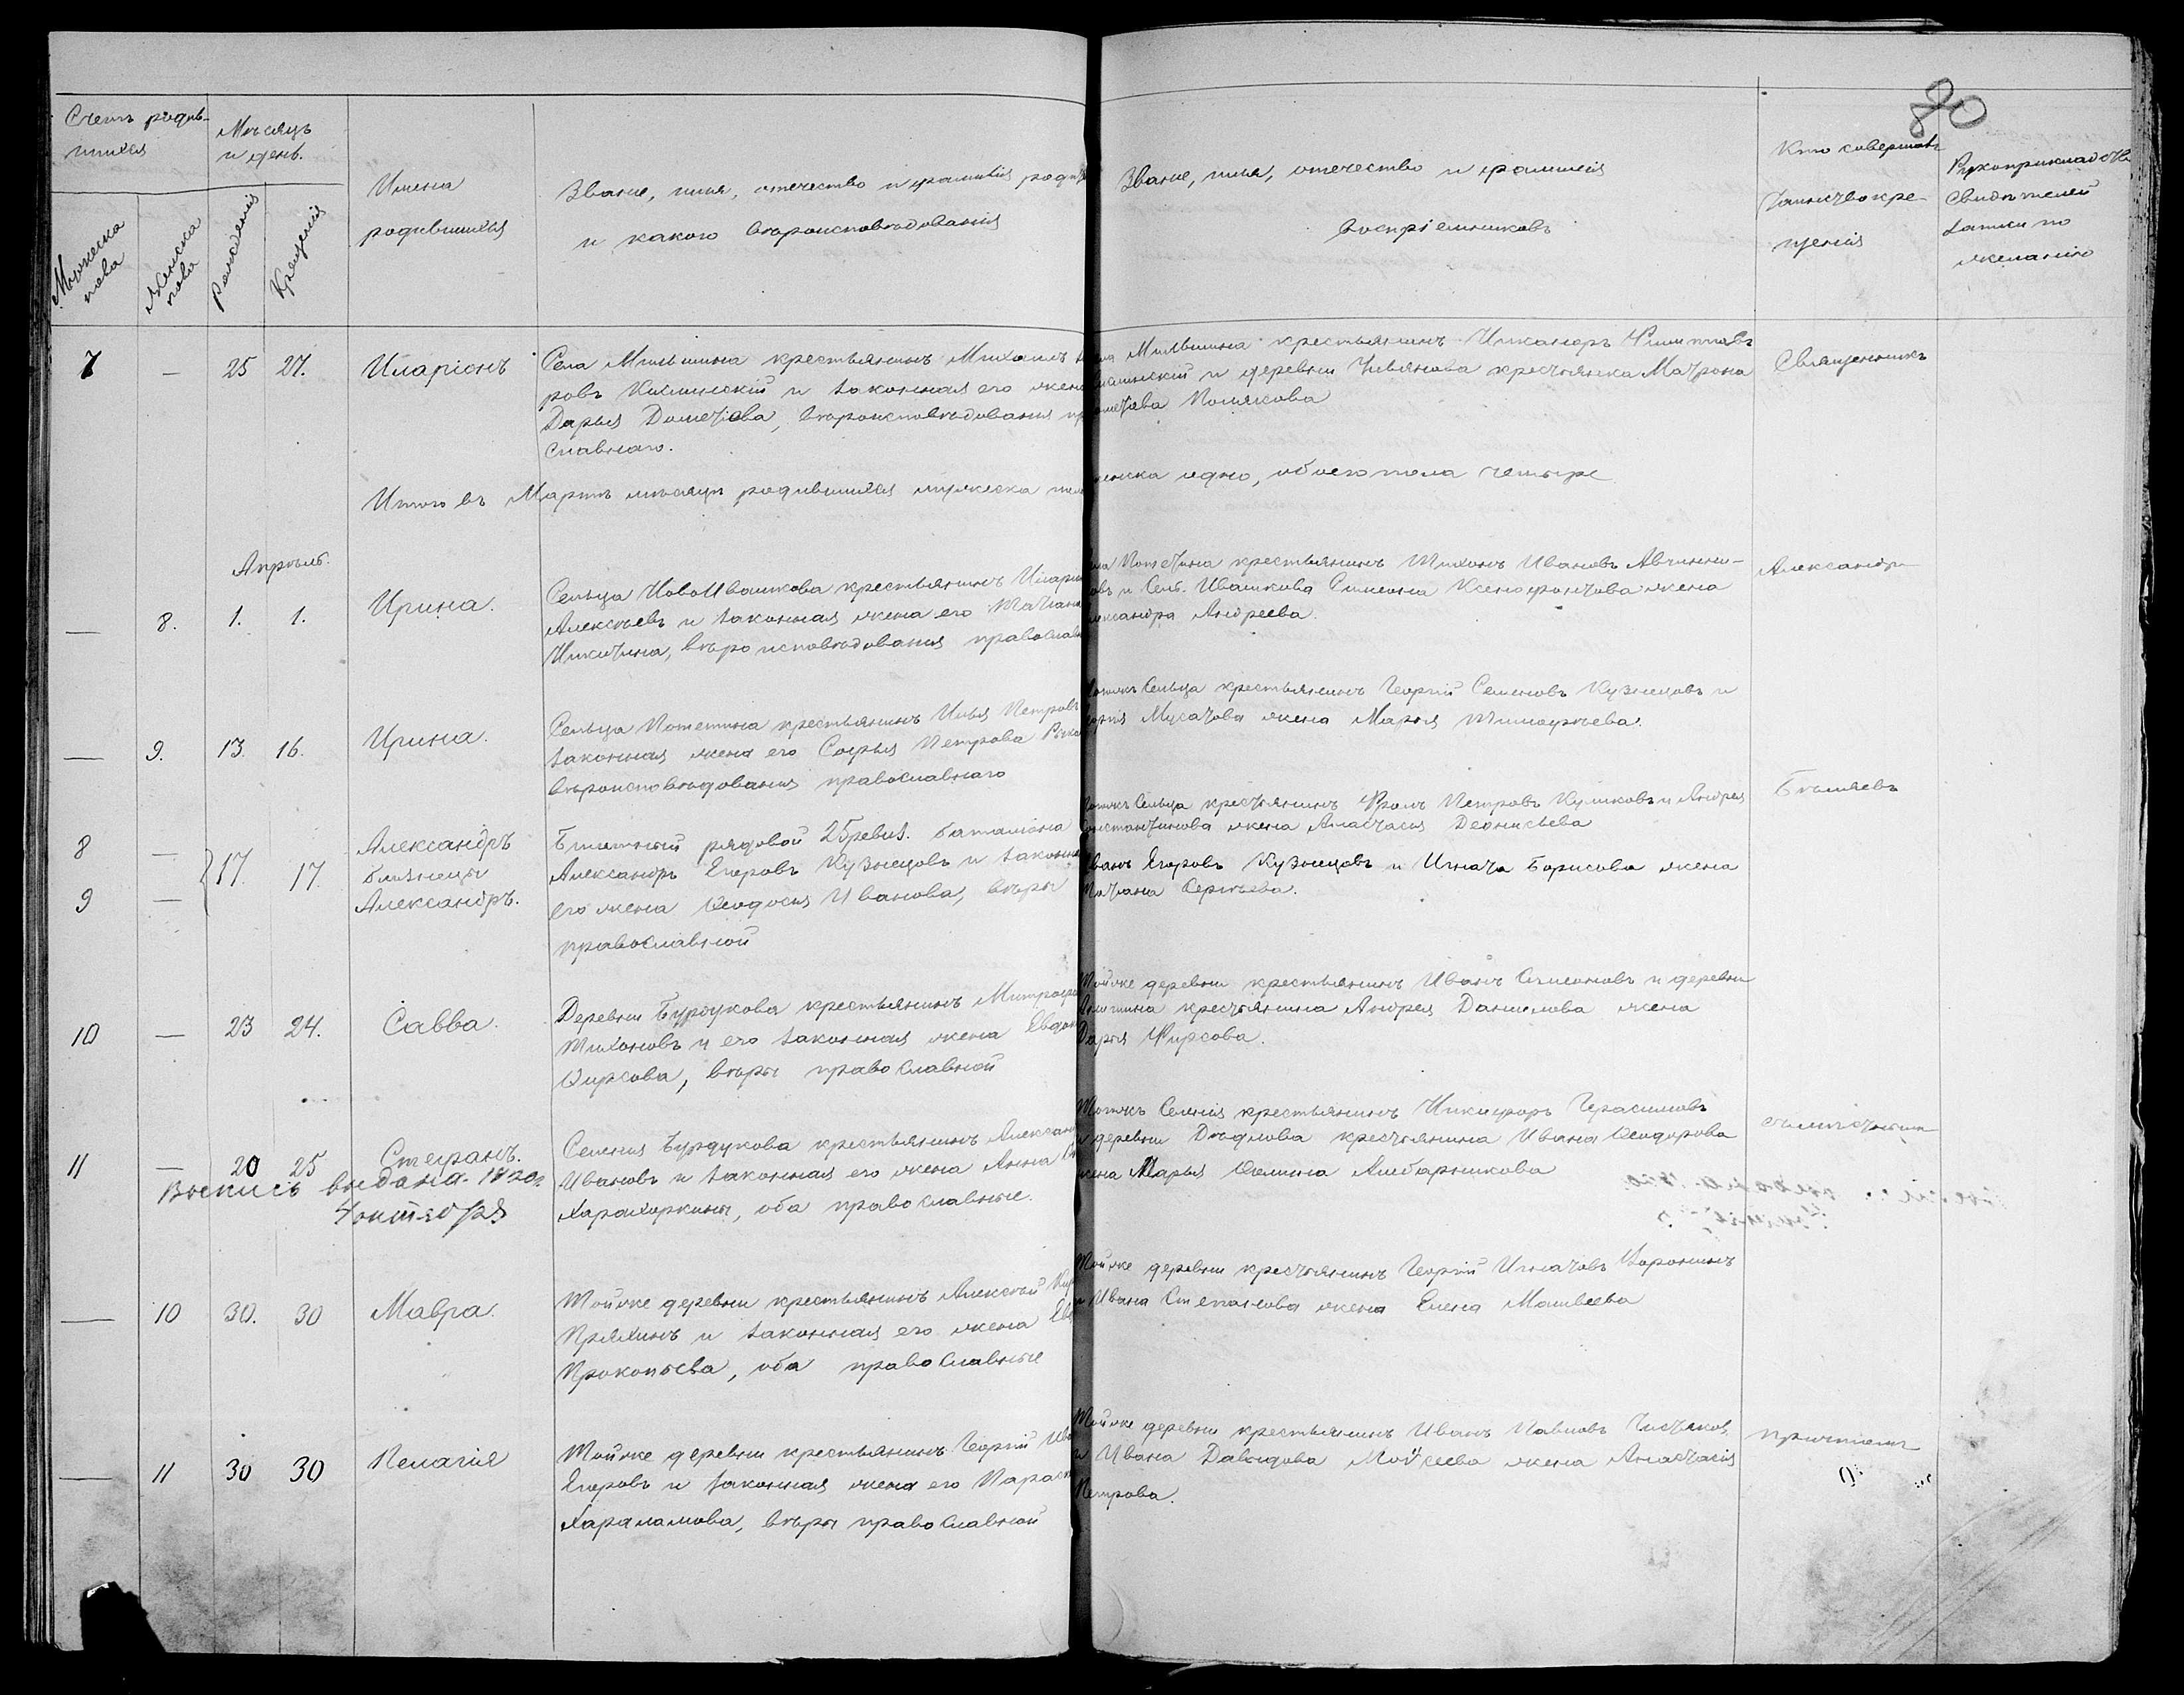 80
Счетъ родив-
шихся
Мѣсяцъ
и день.
Мужеска
пола
Женска
пола
Рожденія
Крещенія
Имена
родившихся
Званіе, имя, отечество и фамилія
и какого вѣроисповѣданія
Званіе, имя, отечество и фамилія
воспріемниковъ
Кто совершалъ
Таинство кре-
щенія
Рукоприкладство
Свидѣтелей
записи по
желанію
7 — 25 27. Иларіонъ
Села Мильшина крестьянинъ Михаилъ
ровъ и законная его жена
Дарья Дометіева, вѣроисповѣданія
славнаго.
Мильшина крестьянинъ Никаноръ Филипповъ
и деревни крестьянка Матрона
Полякова
Священникъ
Итого въ Мартѣ мѣсяцѣ родившихся мужеска
женска одно, обоего пола четыре
Апрѣль.
— 8. 1. 1. Ирина.
Сельца НовоИвашкова крестьянинъ
Алексѣевъ и законная жена его Татьяна
Никитина, вѣроисповѣданія
крестьянинъ Тихонъ Ивановъ Авчинни-
и Сель. Ивашкова Симеона Ксенофонтова жена
Андреева.
Александръ
— 9. 13. 16. Ирина.
Сельца Потетина крестьянинъ Илья Петровъ
законная жена его Софья Петрова
вѣроисповѣданія православнаго
Сельца крестьянинъ Георгій Семеновъ Кузнецовъ и
Мусатова жена Марья Тимофѣева.
8 —
9 —
17. 17.
Александръ
близнецы
Александръ.
рядовой баталіона
Александръ Егоровъ Кузнецовъ и законная
его жена Ѳеодосія Иванова, вѣры
православной
Сельца крестьянинъ Фролъ Петровъ Куликовъ и Андрея
жена Анастасія Деонисьева
Иванъ Егоровъ Кузнецовъ и Игната Борисова жена
Сергѣева.
Бѣляевъ
10 — 23 24. Савва.
Деревни Бурдукова крестьянинъ
Тихоновъ и его законная жена
Ѳирсова, вѣры православной
Тойже деревни крестьянинъ Иванъ Симеоновъ и деревни
крестьянина Андрея Данилова жена
Дарья Фирсова.
11 — 20 25 Стефанъ.
Выпись выдана
4 октября
Селенія Бурдукова крестьянинъ
Ивановъ и законная его жена Анна
Харахоркины, оба православные.
Селенія крестьянинъ Никифоръ Герасимовъ
и деревни Дѣдлова крестьянина Ивана Ѳеодорова
жена Марья Ѳомина Амбарникова
— 10 30. 30 Мавра.
Тойже деревни крестьянинъ Алексѣй
Пряхинъ и законная его жена
Прокопьева, оба православные
Тойже деревни крестьянинъ Георгій Игнатовъ Воронинъ
и Ивана Степанова жена Елена Матвеева
— 11 30 30 Пелагія
Тойже деревни крестьянинъ Георгій
Егоровъ и законная жена его
Хараламова, вѣры православной
Тойже деревни крестьянинъ Иванъ Павловъ
и Ивана Давыдова Мойсеева жена Анастасія
Петрова.
причтомъ